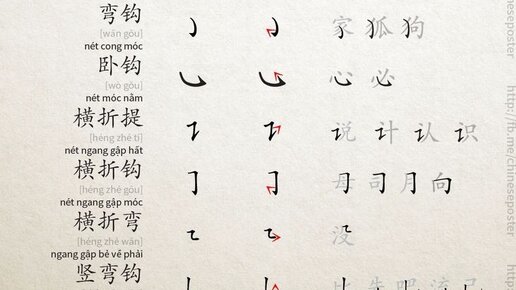 弯钩 家 狐 狗
[wān gōu]
nét cong móc
卧钩 心 必
[wò gōu]
nét móc nằm
横折提 说 计 认 识
[héng zhé tí]
nét ngang gập hất
横折钩 母 司 月 向
[héng zhé gōu]
nét ngang gập móc
横折弯 没
[héng zhé wān]
ngang gập bẻ về phải
竖弯钩
http://fb.me/chineseposter